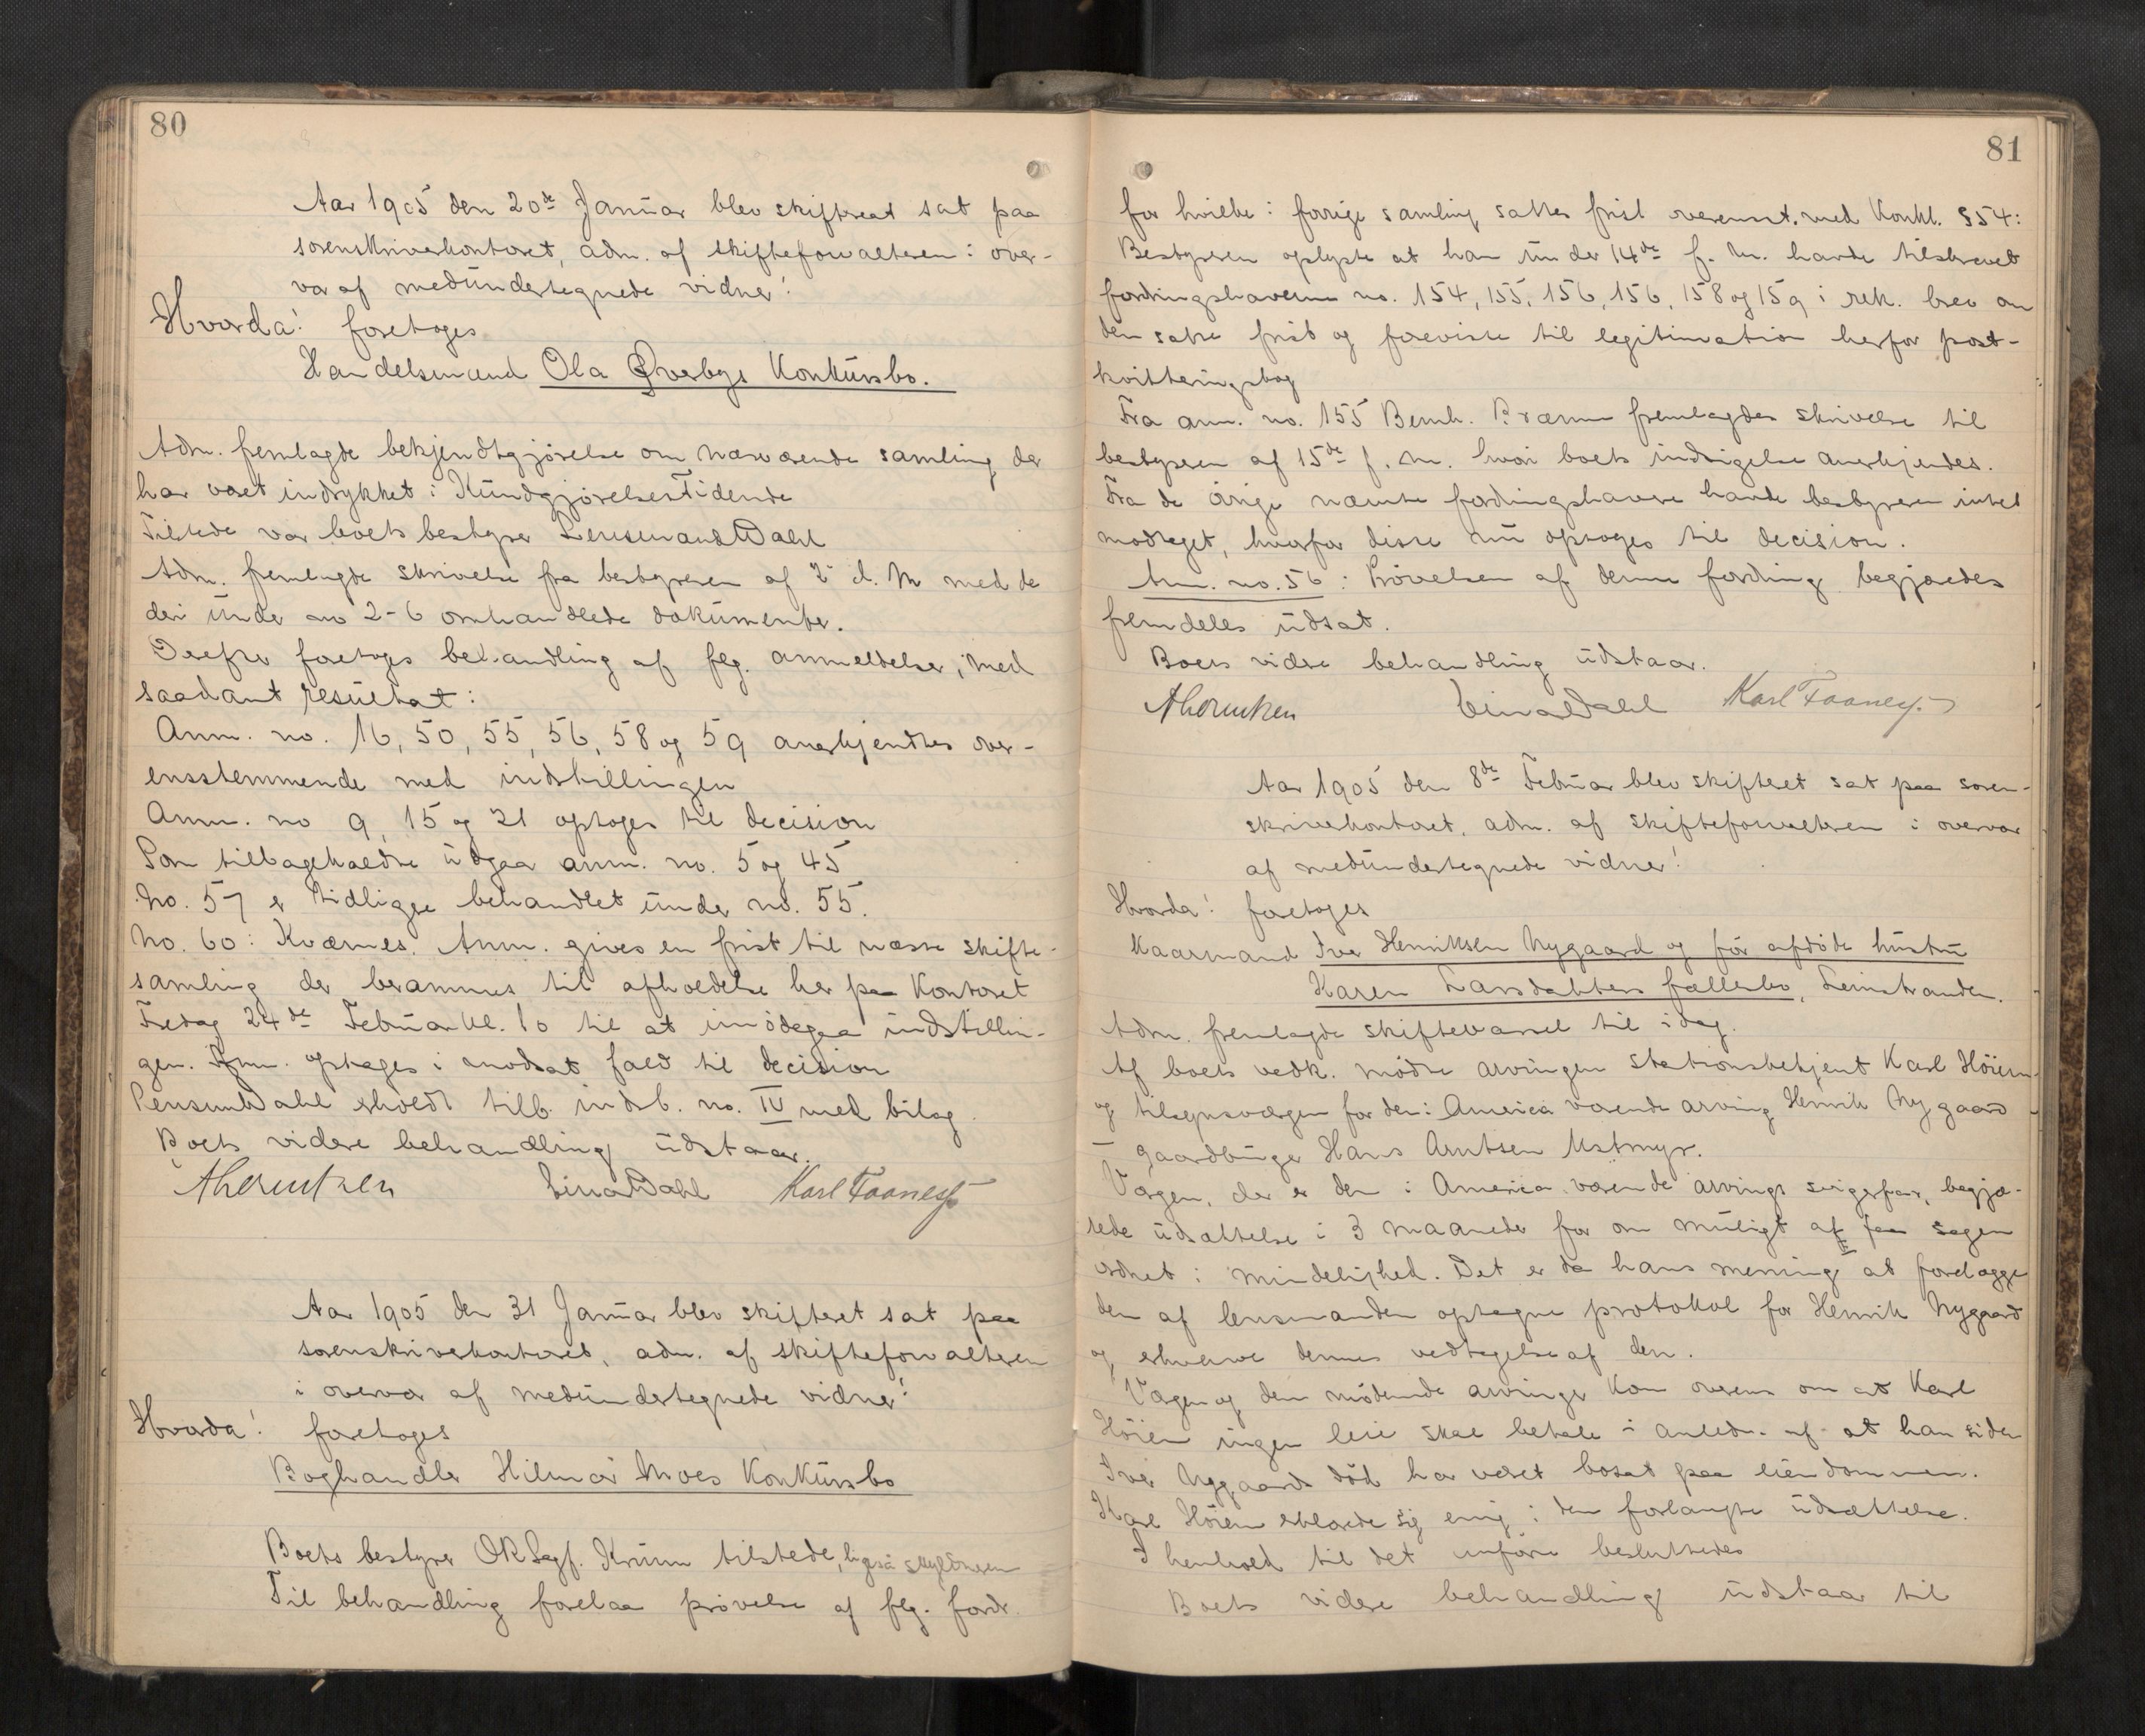 80
Aar 1905 den 20de Januar blev skifteret sat paa
sorenskriverkontoret, adm. af skifteforvalteren i over-
var af medundertegnede vidner!
Hvorda! foretoges
Handelsmand Ola Øverbys Konkursbo.
Adm. fremlagde bekjendtgjørelse om nærværende samling der
har været indrykket i Kundgjørelsestidende
Tilstede var boets bestyrer Lensmand Dahl
Adm. fremlagde skrivelse fra bestyreren af 2 d. M med de
deri under no 2-6 omhandlede dokumenter.
Derefter foretoges behandling af flg. anmeldelser, med
saadant resultat:
Anm. no. 16, 50, 55, 56, 58 og 59 anerkjendtes over-
ensstemmende med indstillingen
Anm. no 9, 15 og 21 optoges til decision
Som tilbageholdte udgaar anm. no. 5 og 45
No. 57 er tidligere behandlet under no. 55.
No. 60: Kværnes. Anm. gives en frist til næste skifte-
samling der berammes til afholdelse her paa Kontoret
Fredag 24de Februar kl. 10 til at imødegaa indstillin-
gen. Anm. optages i modsat fald til decision
Lensm Dahl erholdt tilb. indb. no. IV med bilag
Boets videre behandling udstaar.
Einar Dahl Karl Faaness
Aar 1905 den 31 Januar blev skifteret sat paa
sorenskriverkontoret, adm. af skifteforvalteren
i overvær af medundertegnede vidner!
Hvorda! foretoges
Boghandler Hilmar Moes Konkursbo
Boets bestyrer ORSagf. Krum tilstede, ligesaa skyldneren
Til behandling forelaa prøvelse af flg. fordr.
81
for hvilke i forrige samling sattes frist overensst. med Konkl. §54:
Bestyreren oplyste at han under 14de f. M. havde tilskrevet
fordringshaverne no. 154, 155, 156, 156, 158 og 159 i rek. brev om
den satte frist og foreviste til legitimation herfor post-
kvitteringsbog
Fra anm. no. 155 Bernh. Brænne fremlagdes skrivelse til
bestyreren af 15de f. M. hvori boets indsigelse anerkjendes.
Fra de øvrige nævnte fordringshavere havde bestyreren intet
modtaget, hvorfor disse nu optoges til decision.
Anm. no. 56: Prøvelsen af denne fordring begjæredes
fremdeles udsat.
Boets videre behandling udstaar.
Einar Dahl Karl Faaness
Aar 1905 den 8de Februar blev skifteret sat paa soren-
skriverkontoret, adm. af skifteforvalteren i overvær
af medundertegnede vidner!
Hvorda! foretoges
Kaarmand Iver Henriksen Nygaard og før afdøde hustru
Karen Larsdatters fællesbo, Leinstranden.
Adm. fremlagde skiftevarsel til idag.
Af boets vedk. mødte arvingen stationsbetjent Karl Høiem
og tilsynsværgen for den i America værende arving Henrik Nygaard
- gaardbruger Hans Arntsen Ustmyr.
Værgen, der er den i America værende arvings svigerfar, begjæ-
rede udsættelse i 3 maaneder for om muligt at faa sagen
ordnet i mindelighed. Det er da hans mening at forelægge
den af lensmanden optagne protokol for Henrik Nygaard
og erhverve dennes vedtagelse af den.
Værgen og den mødende arvinge kom overens om at Karl
Høiem ingen leie skal betale i anledn. af at han siden
Iver Nygaards død har været bosat paa eiendommen.
Karl Høiem erklærede sig enig i den forlangte udsættelse.
I henhold til det anførte besluttedes
Boets videre behandling udstaar til